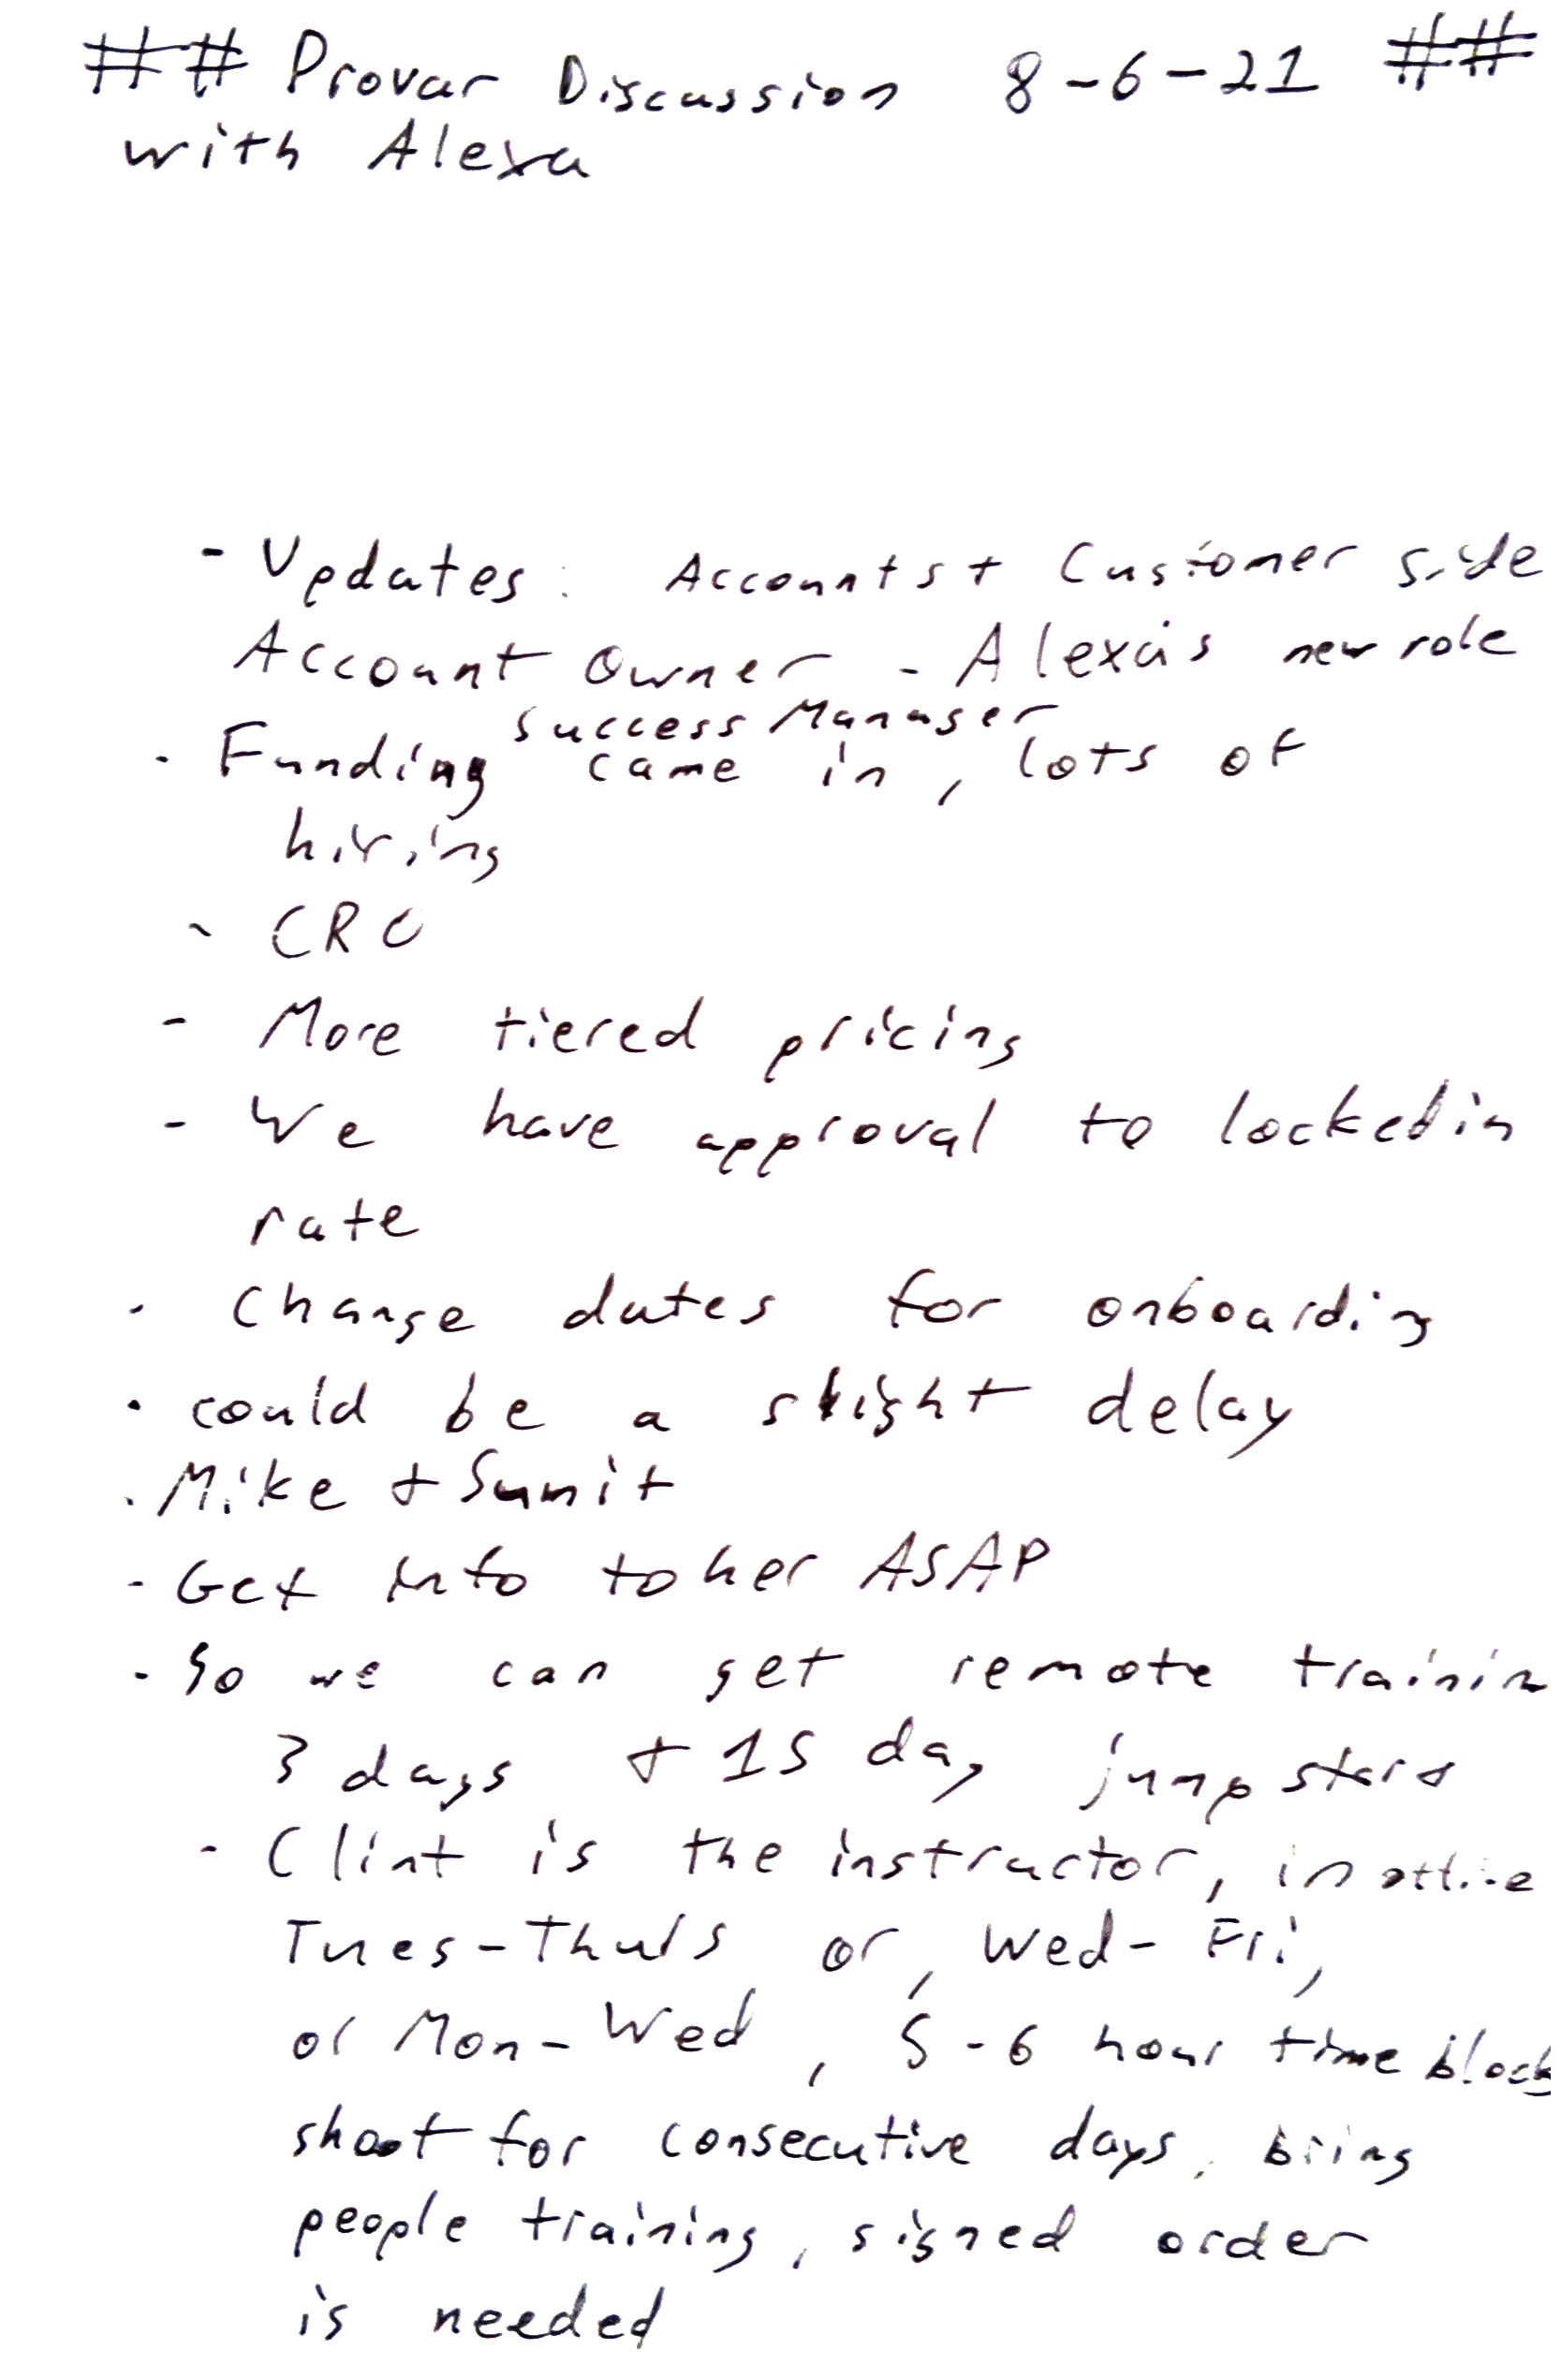 ## Provar Discussion 8-6-21 ##
with Alexa
- Updates: Accounts + Customer side
Account Owner - Alexa's new role
Success Manager
- Funding came in, lots of
hiring
- CRO
- More tiered pricing
- We have approval to locked in
rate
- Change dates for onboarding
- could be a slight delay
- Mike + Sumit
- Get info to her ASAP
- So we can get remote trainin
3 days + 15 day jump start
- Clint is the instructor, in office
Tues-Thurs or, Wed-Fri,
or Mon-Wed, 5-6 hour time block
shoot for consecutive days, bring
people training, signed order
is needed